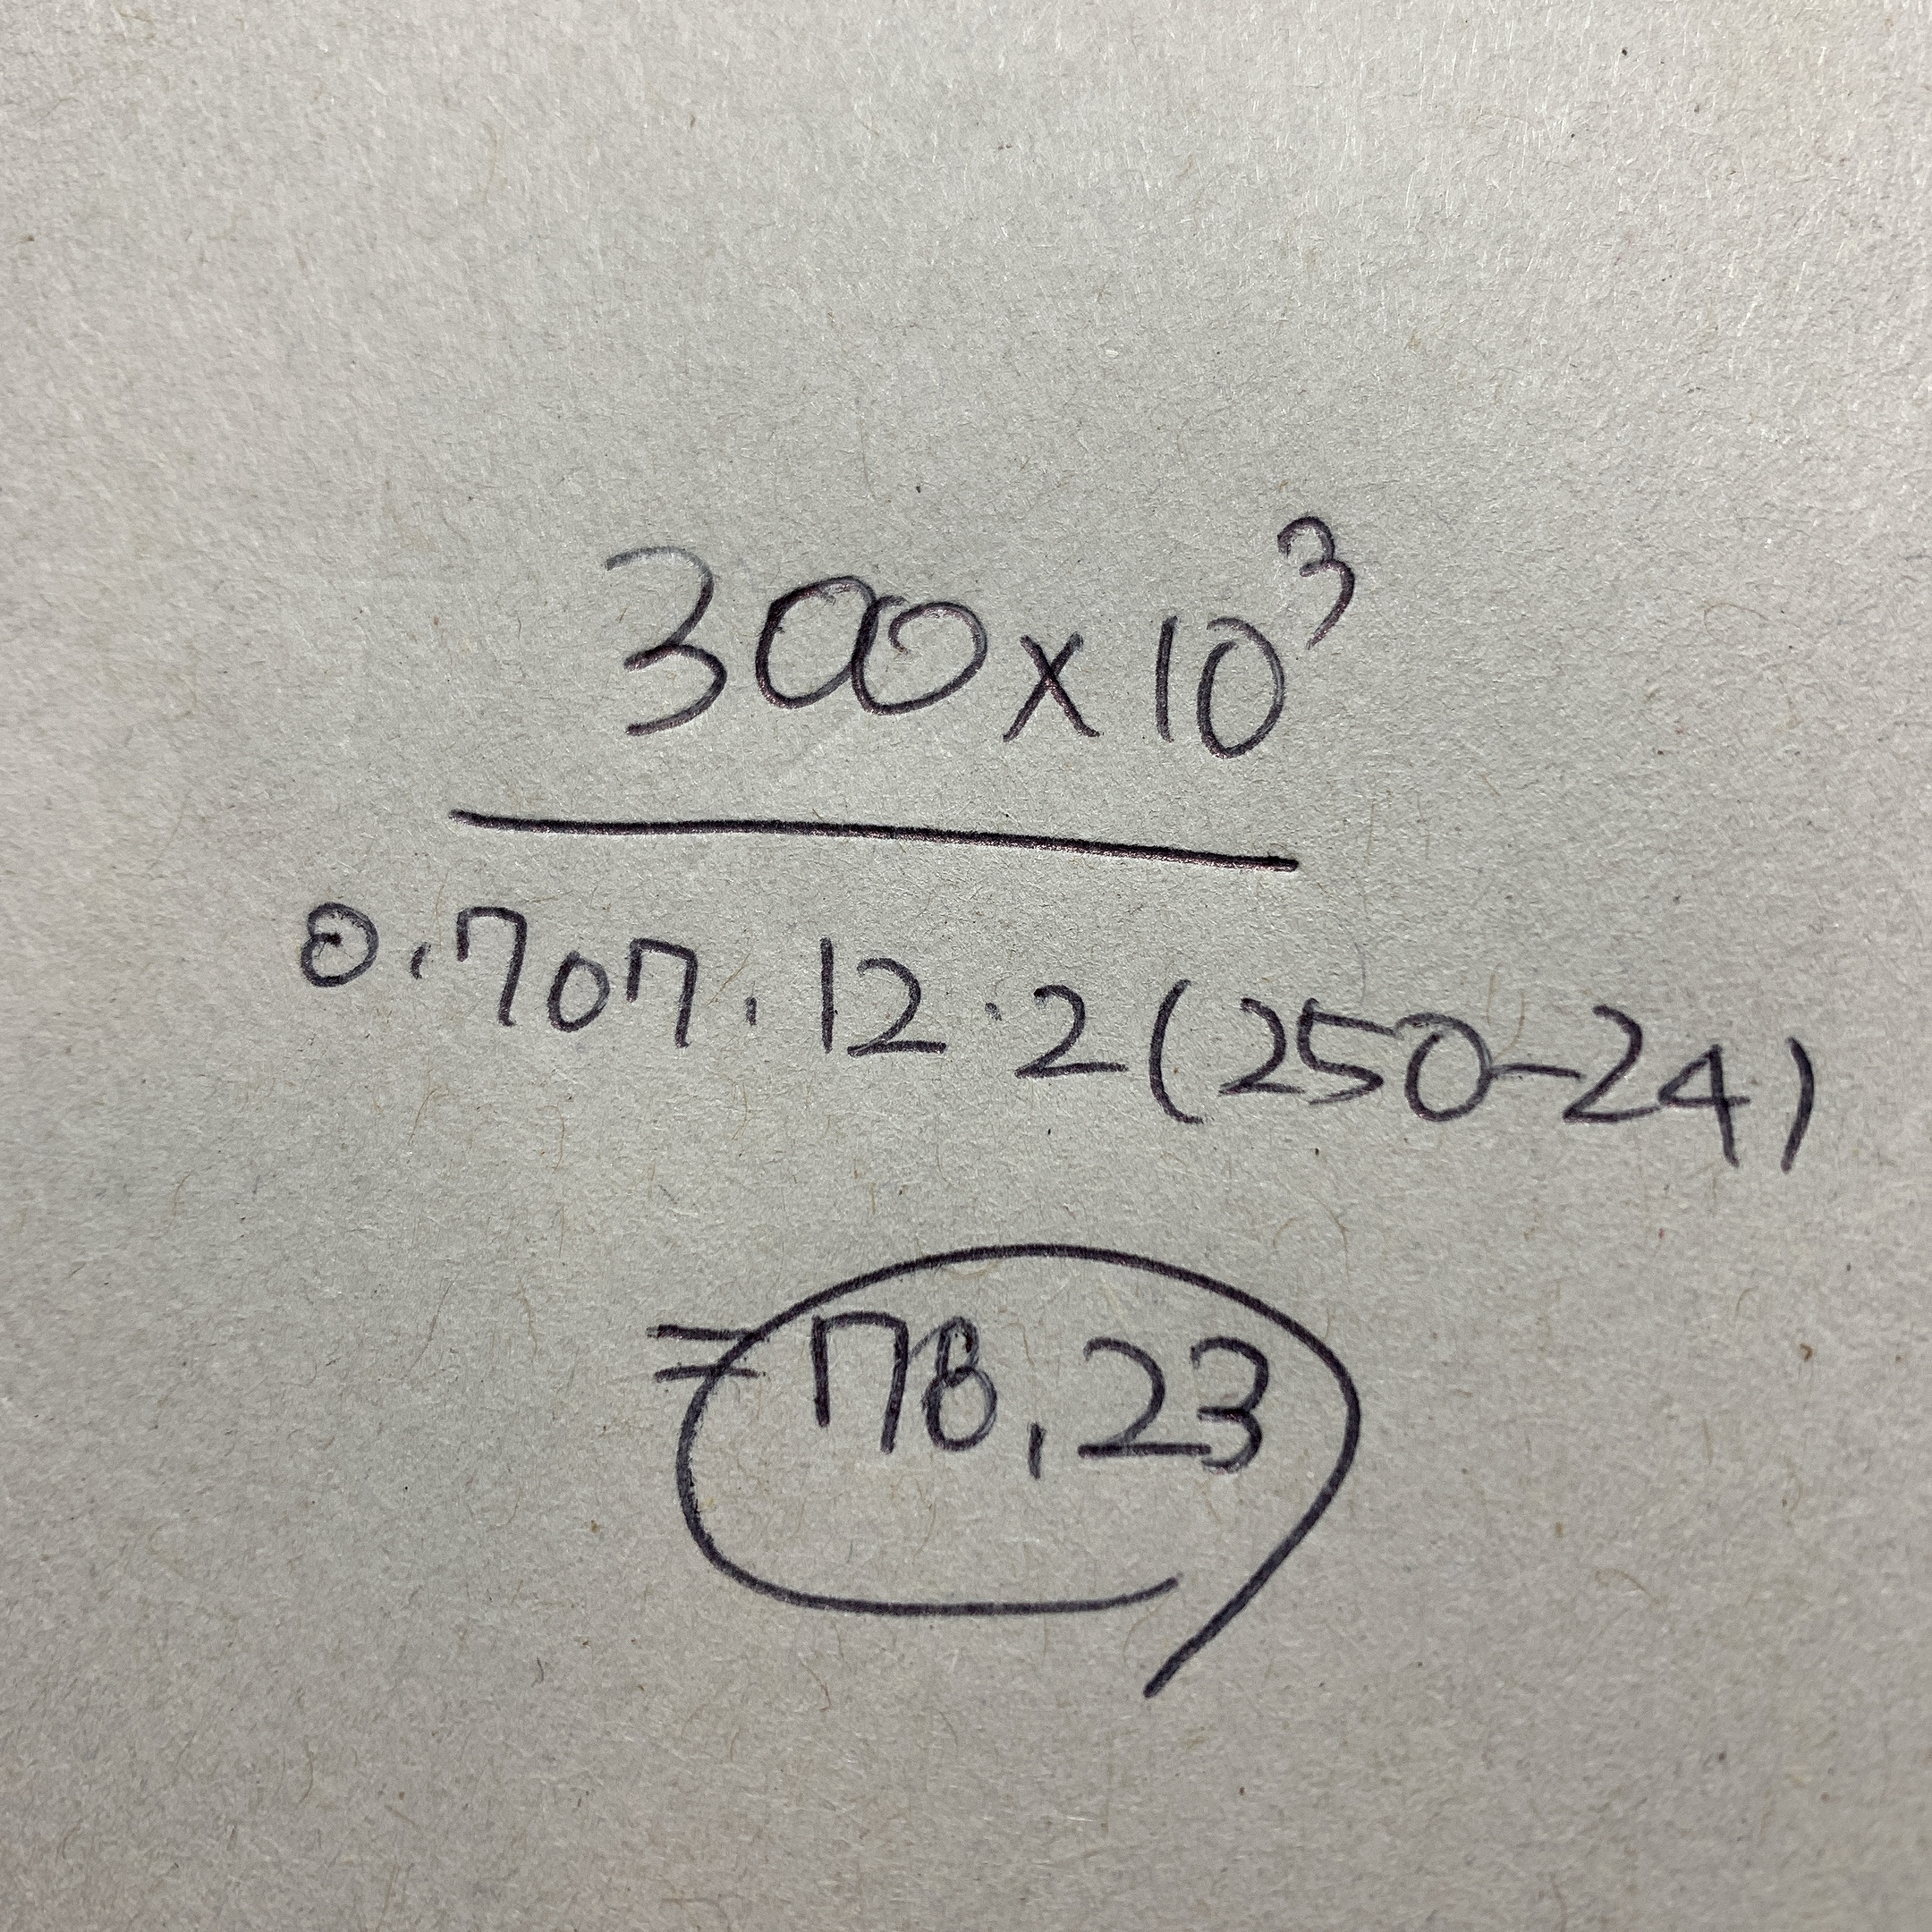 300×10³
0.707.12.2(250-24)
=78.23